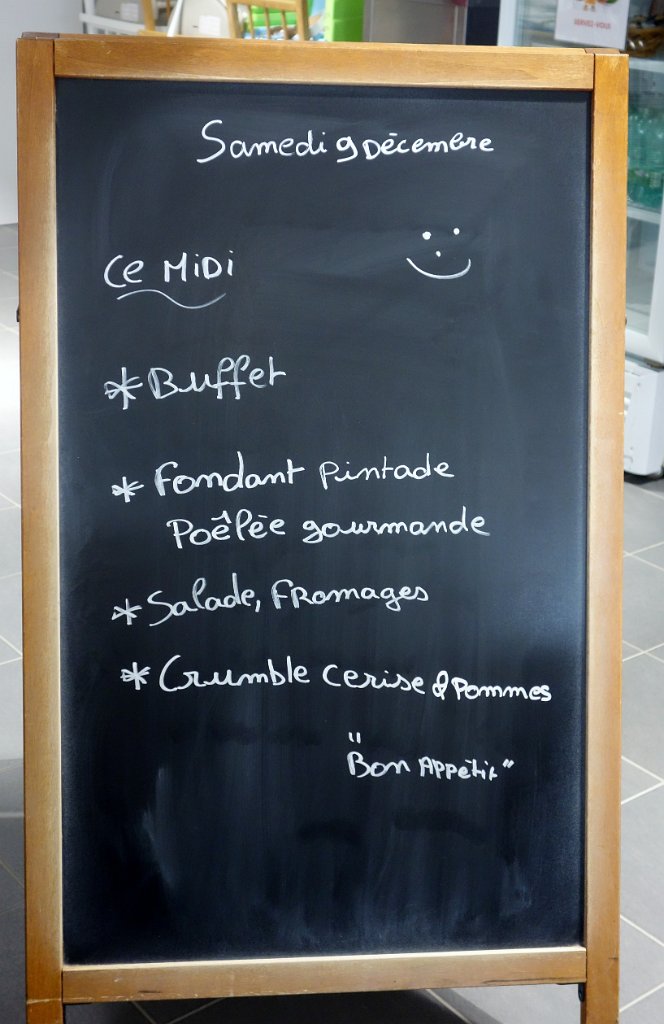 SERVEZ-VOUS
Samedi 9 Décembre
Ce MiDi
* Buffet
* Fondant pintade
Poêlée gourmande
* Salade, FRomages
* Crumble cerise & Pommes
"Bon Appétit"